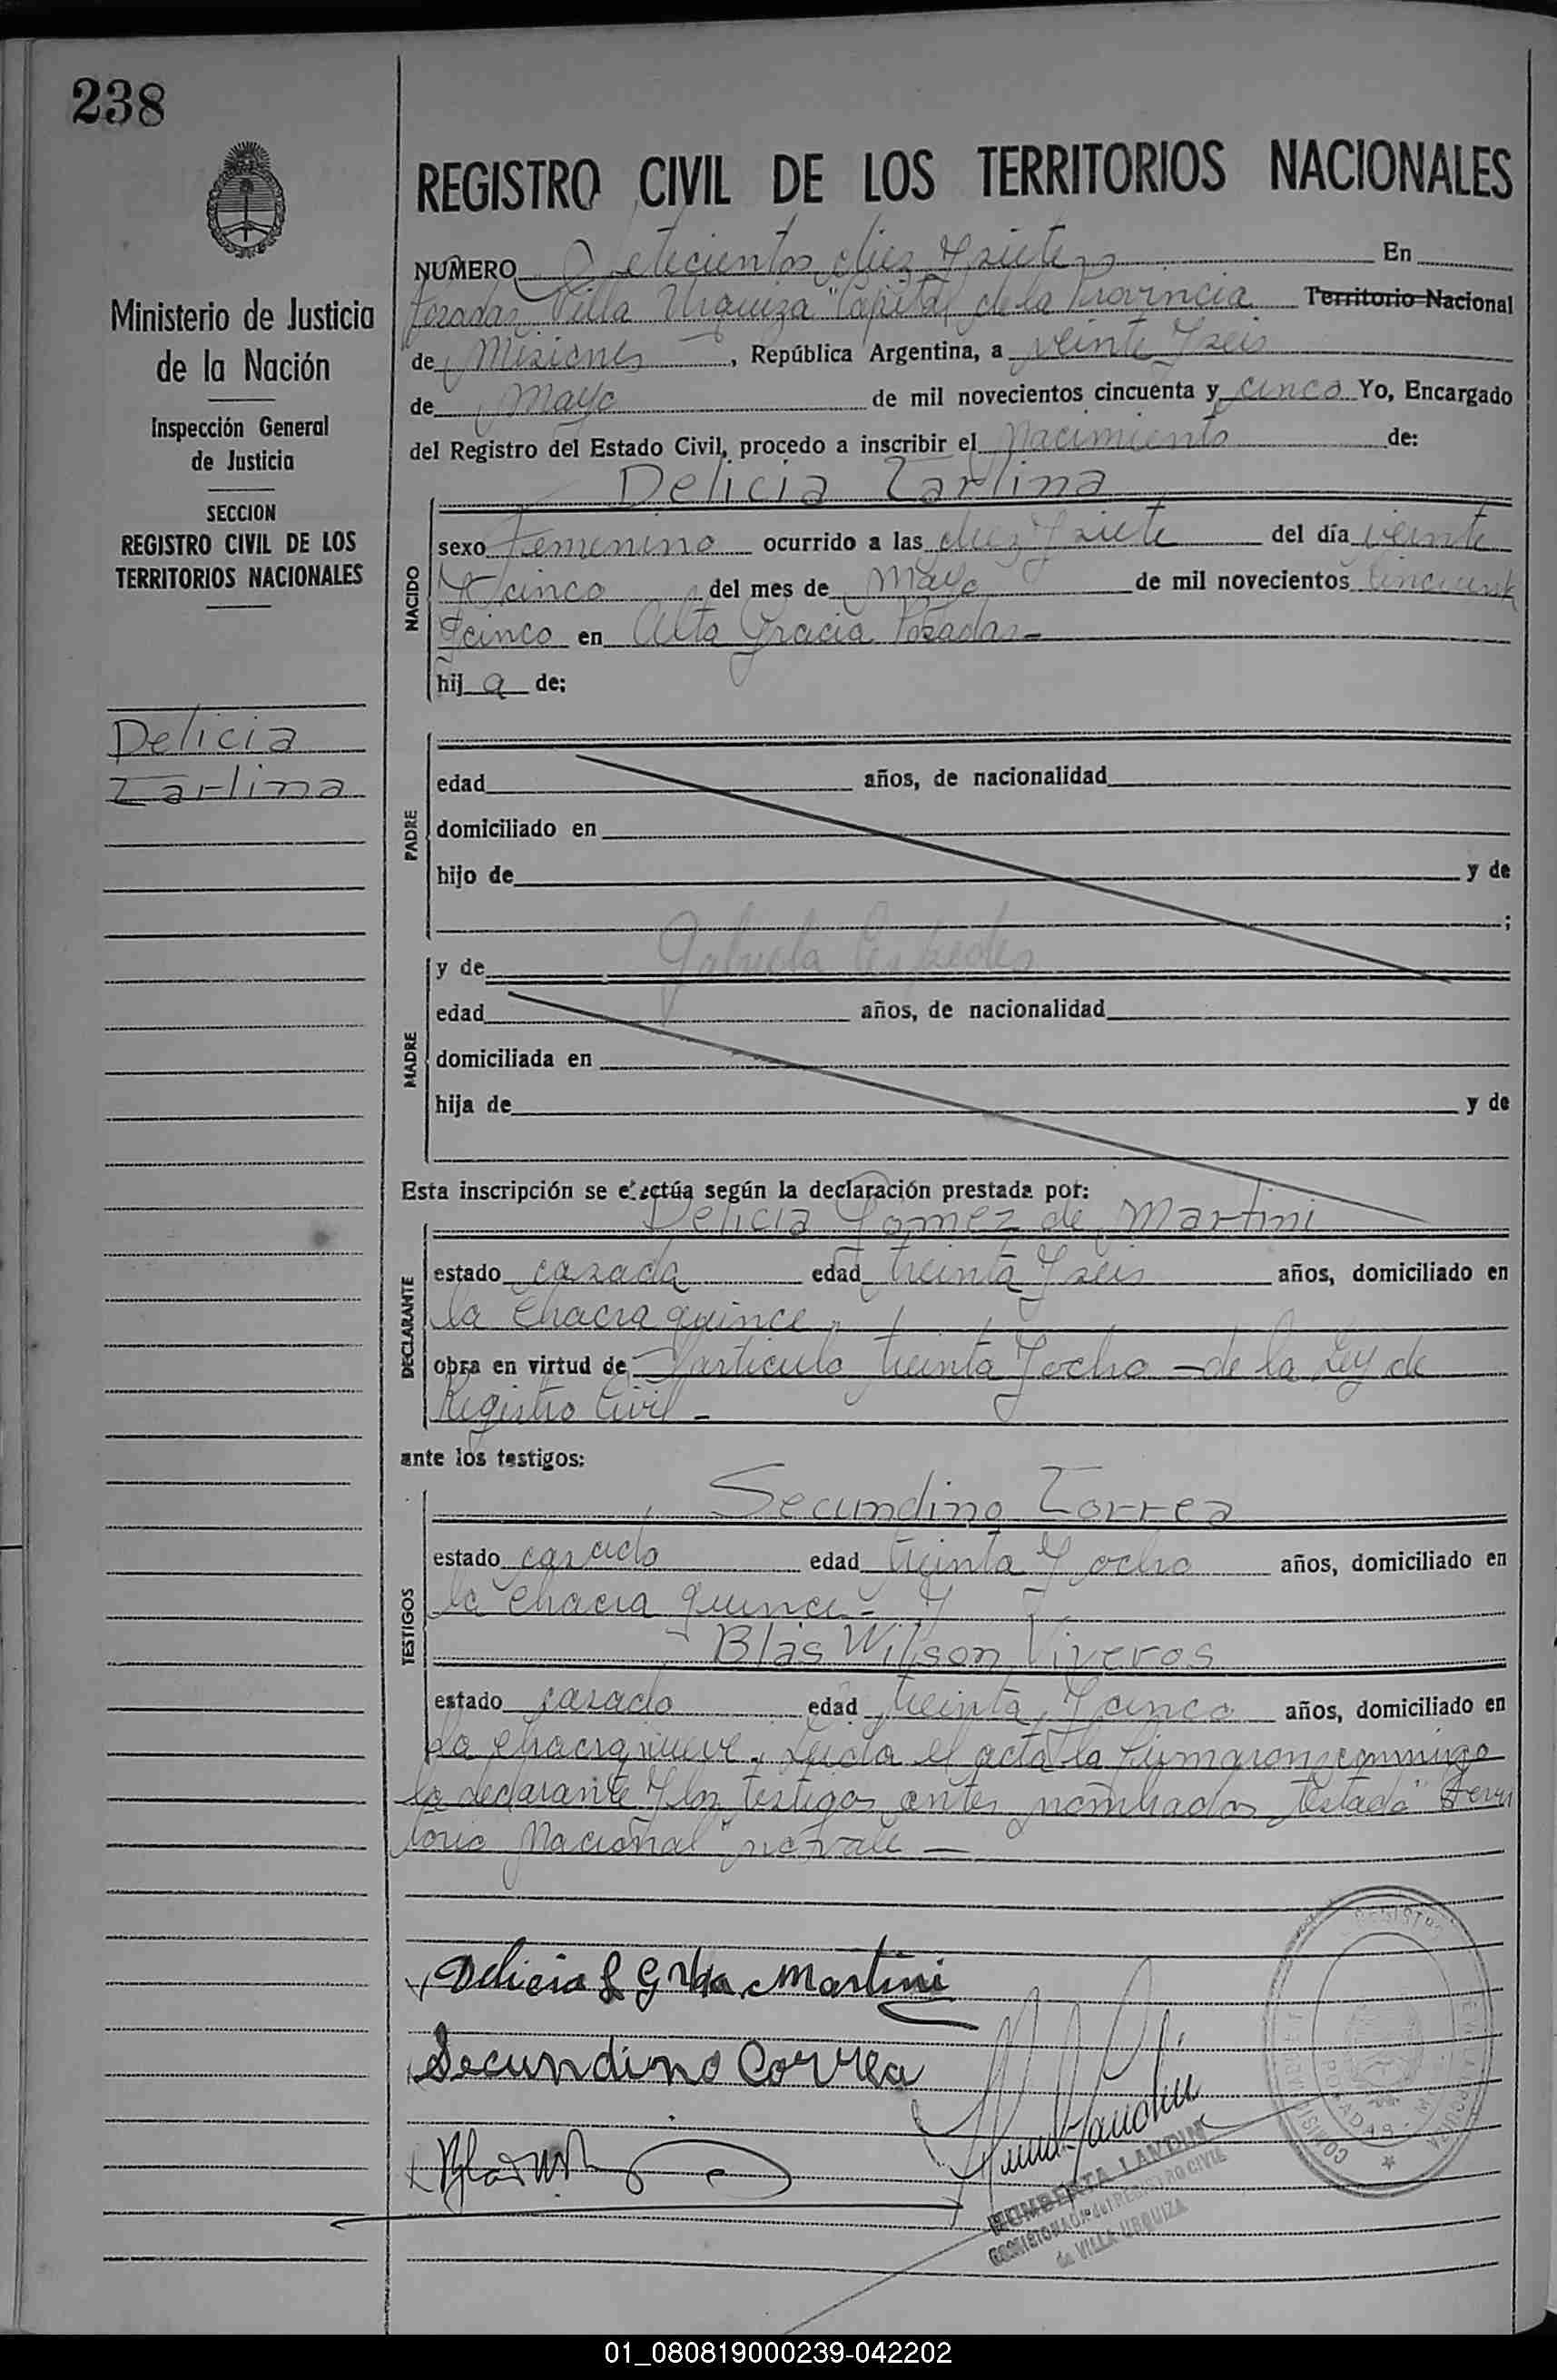 238
Ministerio de Justicia
de la Nación
Inspección General
de Justicia
SECCION
REGISTRO CIVIL DE LOS
TERRITORIOS NACIONALES
Delicia
Zarlina
REGISTRO CIVIL DE LOS TERRITORIOS NACIONALES
NUMERO Setecientos diez y siete En
Posadas Villa Urquiza "Capital de la Provincia Territorio Nacional
de Misiones, República Argentina, a veinte y seis
de Mayo de mil novecientos cincuenta y cinco Yo, Encargado
del Registro del Estado Civil, procedo a inscribir el nacimiento de:
Delicia Zarlina
NACIDO
sexo Femenino ocurrido a las diez y siete del día veinte
y cinco del mes de Mayo de mil novecientos cincuenta
y cinco en Alta Gracia Posadas.-
hij a de:
PADRE
edad años, de nacionalidad
domiciliado en
hijo de y de
;
MADRE
y de Gabriela Cespedes
edad años, de nacionalidad
domiciliada en
hija de y de
Esta inscripción se efectúa según la declaración prestada por:
Delicia Gomez de Martini
DECLARANTE
estado casada edad treinta y seis años, domiciliado en
la chacra quince,
obra en virtud de articulo treinta y ocho - de la Ley de
Registro Civil -
ante los testigos:
TESTIGOS
Secundino Correa
estado casado edad treinta y ocho años, domiciliado en
la chacra quince - y
Blas Wilson Viveros
estado casado edad treinta y cinco años, domiciliado en
la chacra nueve. Leida el acta la firmaron conmigo
la declarante y los testigos antes nombrados Testado "Terri
torio Nacional" no vale -
Delicia G Martini
Secundino Correa
HUMBERTA LANDINI
COMISIONADA del REGISTRO CIVIL
de VILLA URQUIZA
01_080819000239-042202